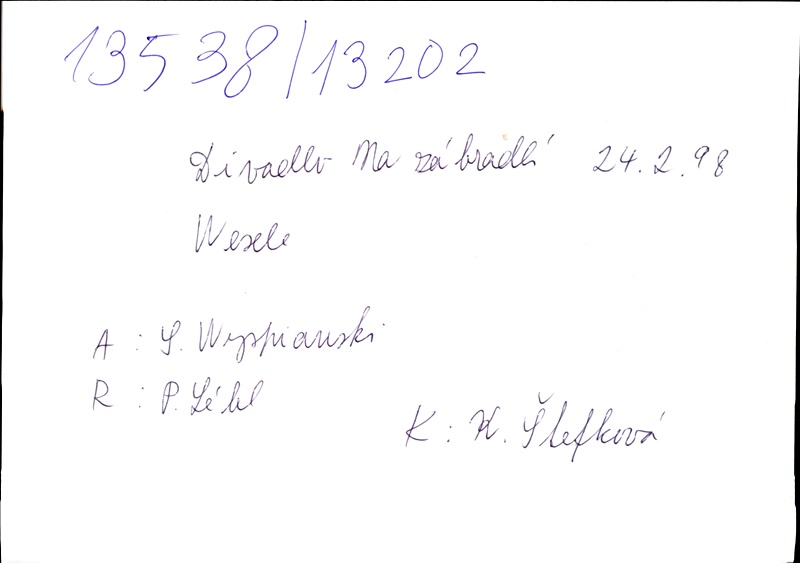 13538/13202
Divadlo Na zábradlí 24.2.98
Wesele
A : S. Wyspianski
R : P. Lébl
K : K. Štefková